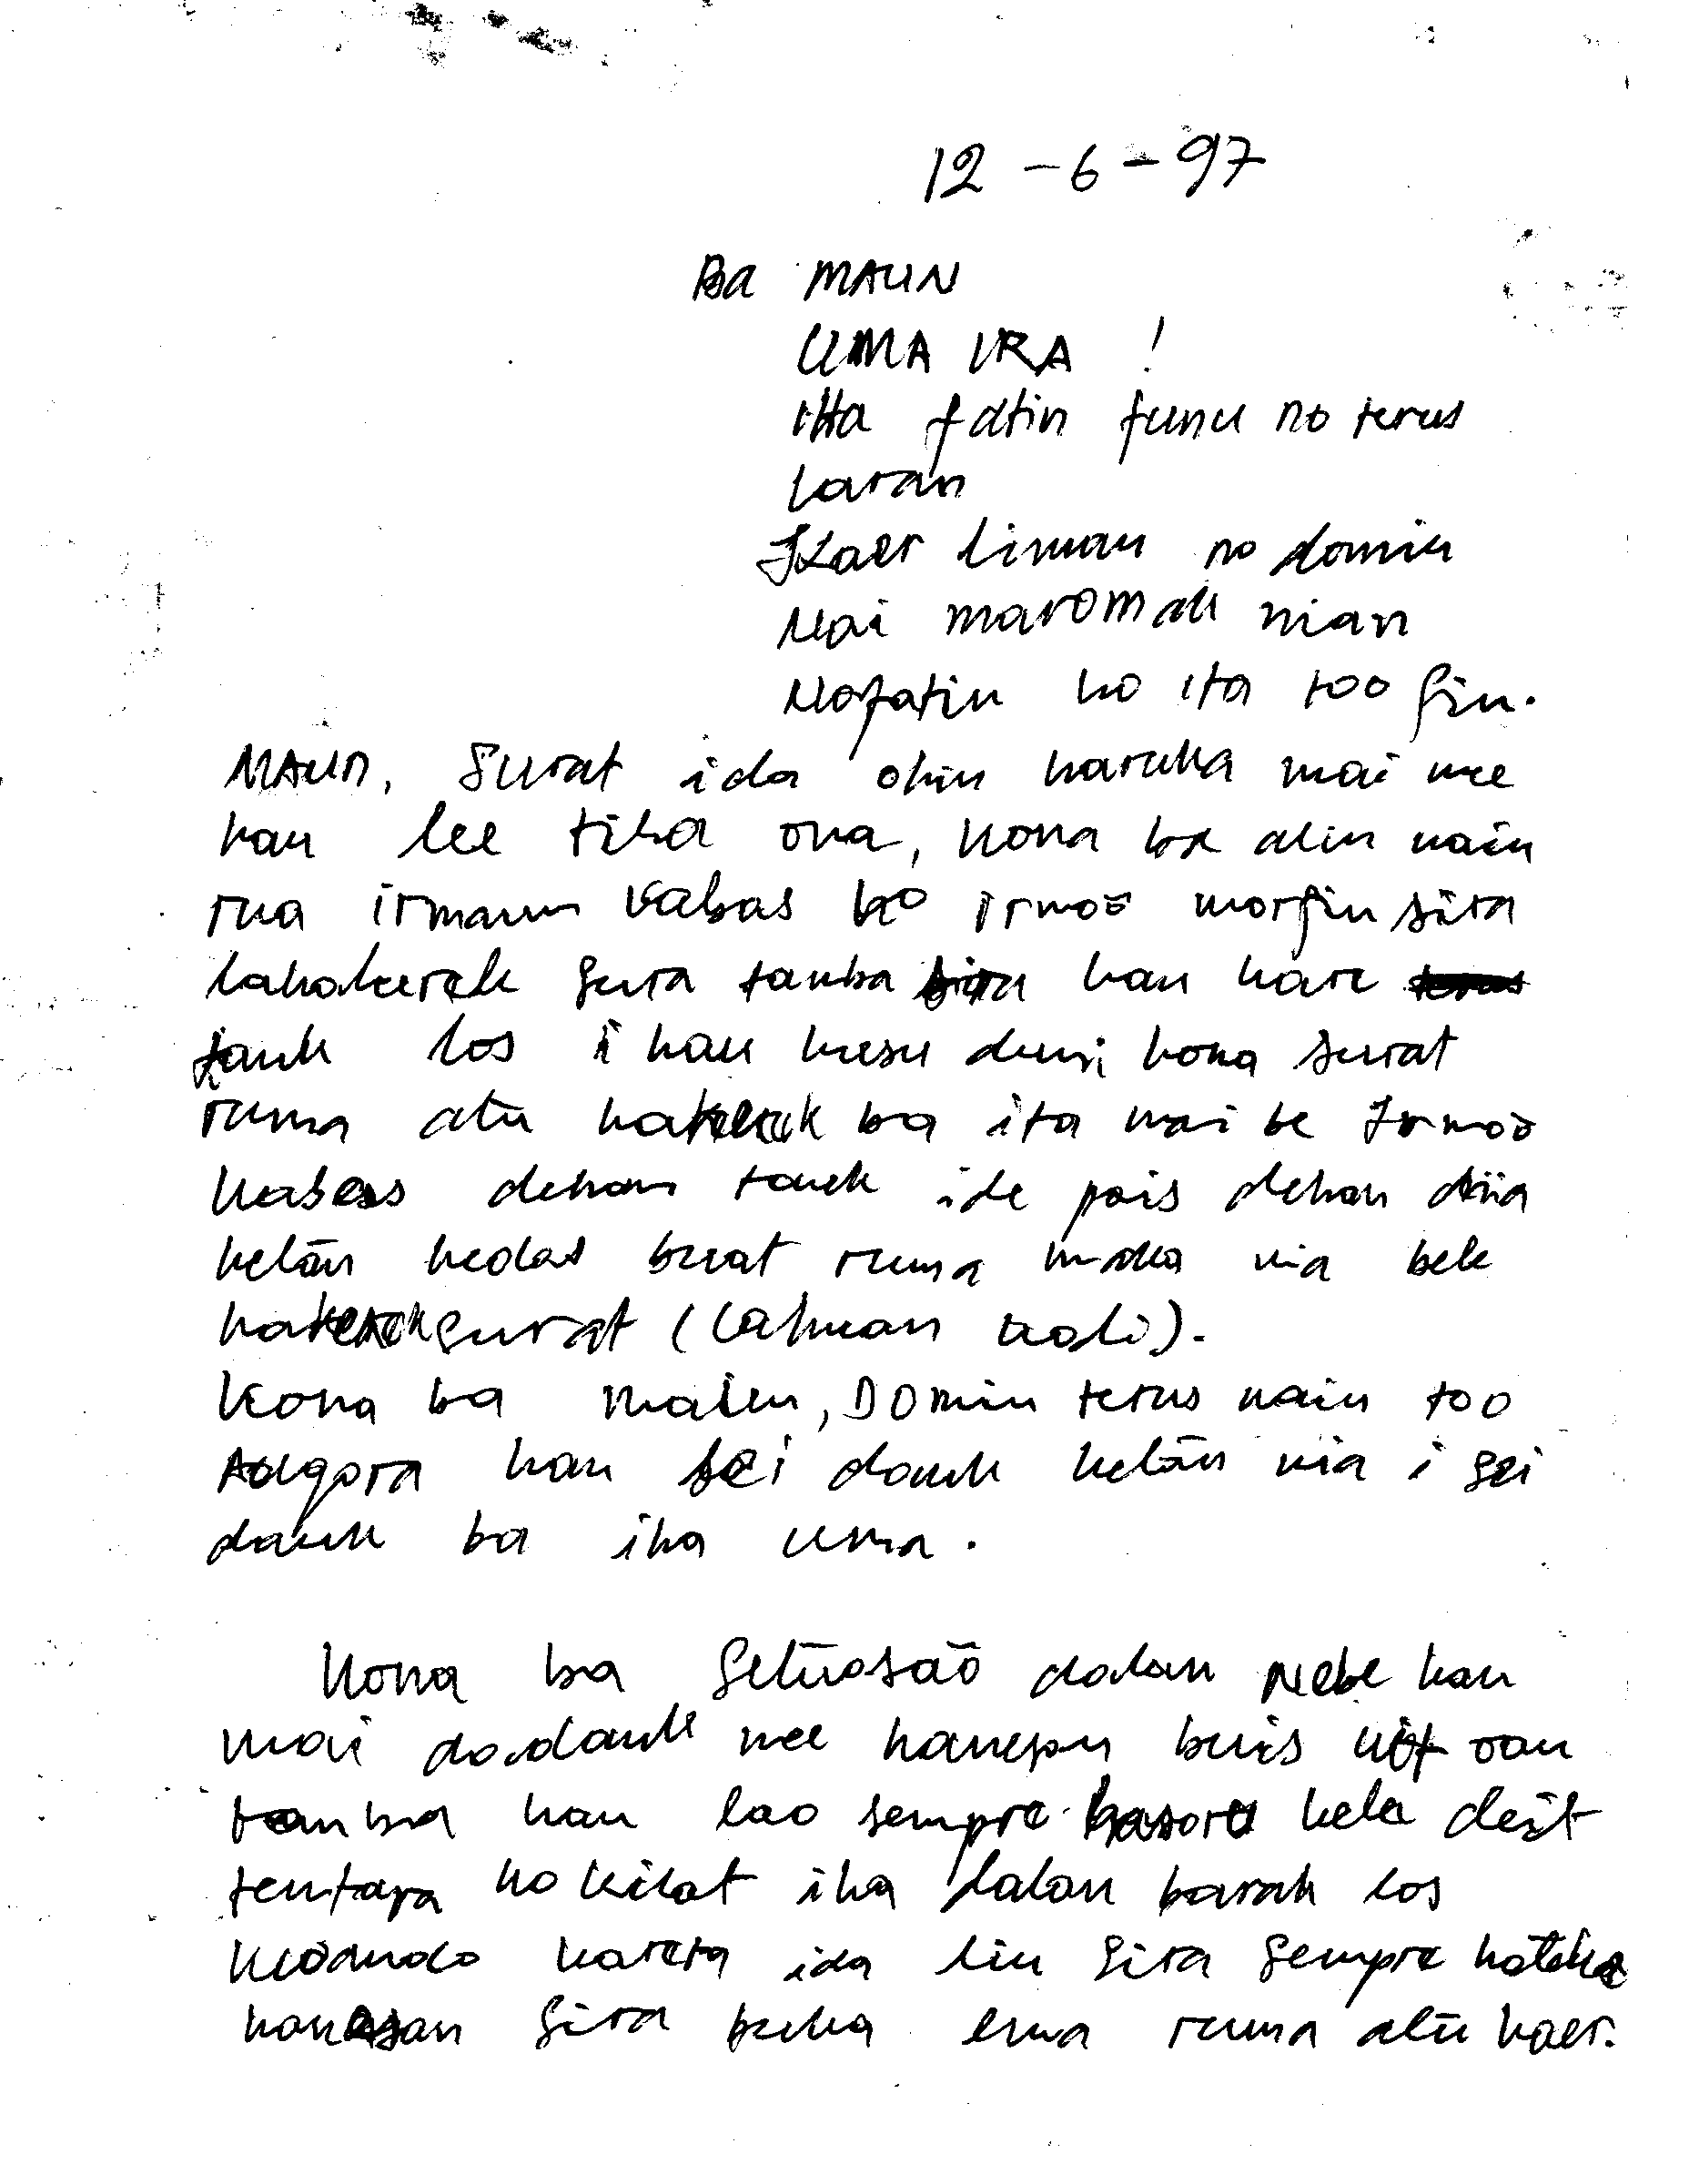 12-6-97
Ba MAUN
UMA VRA !
itta fatin funu no terus
Laran
Kaer liman no domin
Nai maromak nian
Nofatin ho ita too fin.
MAUN, Surat ida ohin haruka mai nee
hau lee tiha ona, kona ba alin nain
rua irmaun Kabas ho irmoö morfin sira
lahakerek sura tanba sira hau hare
tauk los i hau husu dusi kona surat
ruma atu hakerek ba ita mai be Irmoö
Kabas dehan tauk ide pois dehan diia
kelān kedas buat ruma maka nia bele
hakerek surat (Lahuan kodi).
Kona ba malen, Domin terus nain too
Adgora hau sei dauk kelān nia i sei
dauk ba iha uma.
Kona ba Setūosaō dalan Nebe hau
mai dadauk nee hanepu buis uit oan
tanba hau lao sempre hasoru kele deit
tentara ho kilat iha dalan barak los
kuāndo kareta ida liu Sira Sempre hateke
hanesan Sira buka ema ruma atu kaer.